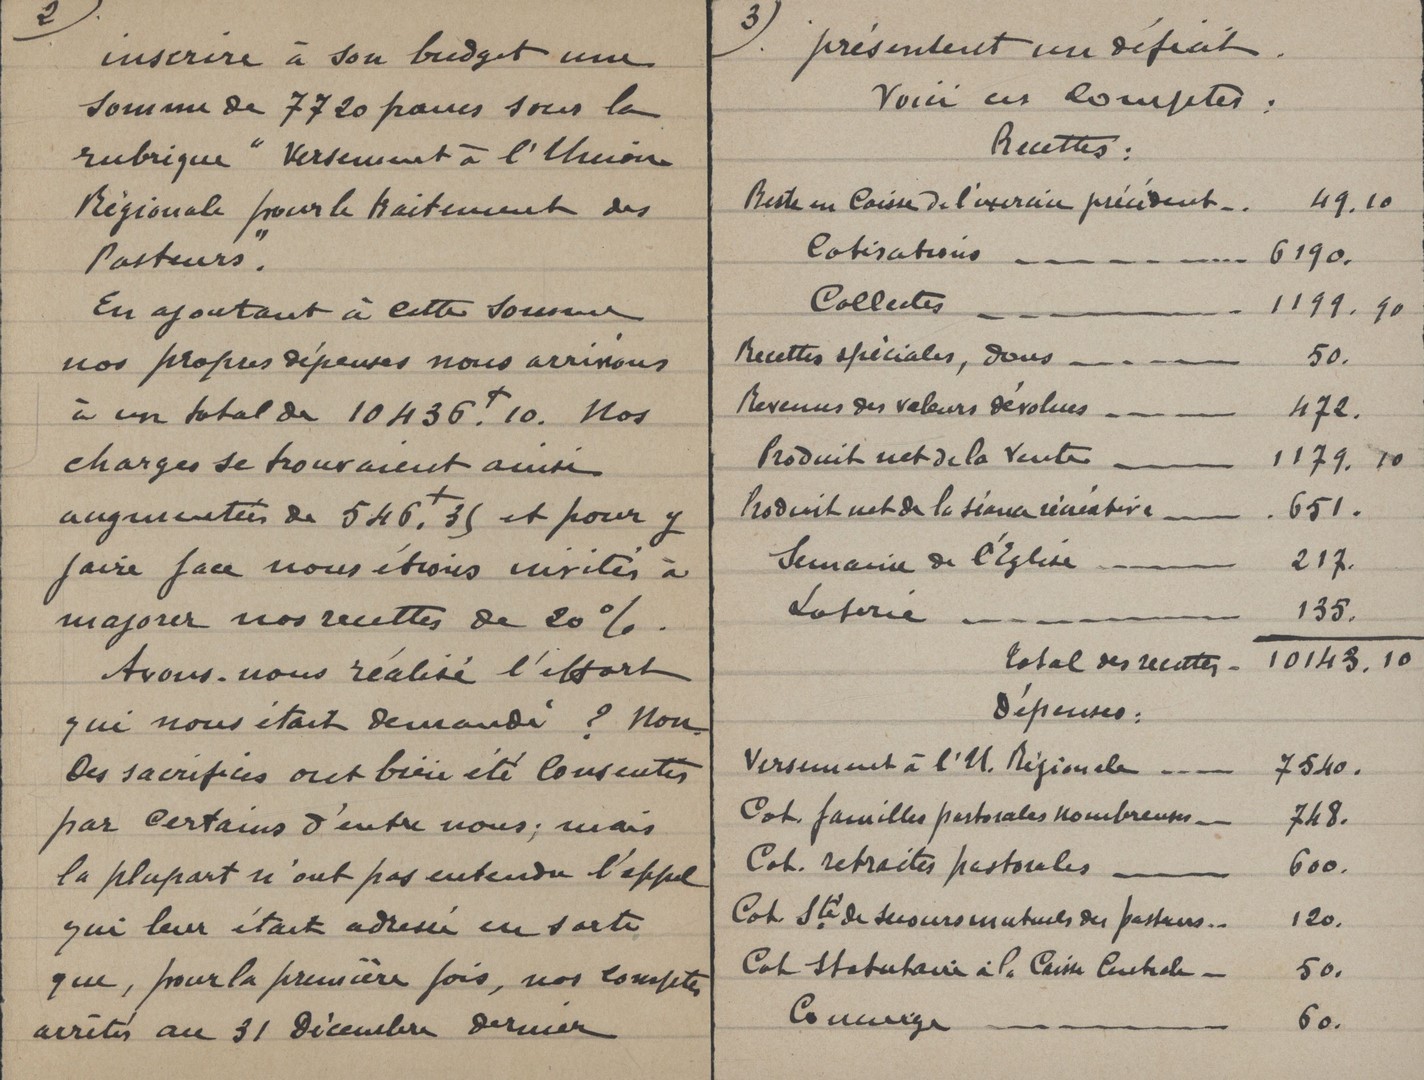 2)
inscrire à son budget une
somme de 7720 francs sous la
rubrique " Versement à l'Union
Régionale pour le traitement des
Pasteurs".
En ajoutant à cette somme
nos propres dépenses nous arrivions
à un total de 10436f. 10. Nos
charges se trouvaient ainsi
augmentées de 546f. 35 et pour y
faire face nous étions invités à
majorer nos recettes de 20 %.
Avons-nous réalisé l'effort
qui nous était demandé ? Non.
Des sacrifices ont bien été consentis
par certains d'entre nous; mais
la plupart n'ont pas entendu l'appel
qui leur était adressé en sorte
que, pour la première fois, nos comptes
arrêtés au 31 Décembre dernier
3)
présentent un déficit.
Voici ces comptes :
Recettes :
Reste en Caisse de l'exercice précédent -. 49. 10
Cotisations 6190.
Collectes 1199. 90
Recettes spéciales, dons 50.
Revenus des valeurs dévolues 472.
Produit net de la Vente 1179. 10
Produit net de la séance récréative 651.
Semaine de l'Eglise 217.
Loterie 135.
Total des recettes - 10143. 10
Dépenses :
Versement à l'U. Régionale 7540.
Cot. familles pastorales nombreuses 748.
Cot. retraites pastorales 600.
Cot. Sté de secours mutuels des pasteurs.. 120.
Cot Statutaire à la Caisse Centrale - 50.
Concierge 60.